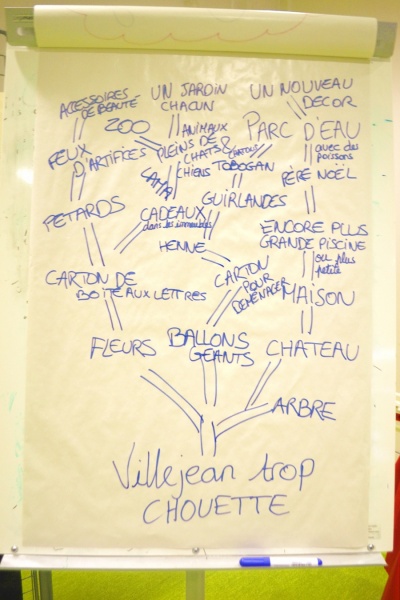 ACCESSOIRES
DE BEAUTÉ
UN JARDIN
CHACUN
UN NOUVEAU
DECOR
ZOO
ANIMAUX
PLEINS DE
CHATS &
CHATOUS
CHIENS
PARC D'EAU
avec des
poissons
FEUX
D'ARTIFICES
LAMA
TOBOGAN
PÈRE NOËL
PETARDS
CADEAUX
dans les immeubles
GUIRLANDES
HENNE
ENCORE PLUS
GRANDE PISCINE
ou plus
petite
CARTON DE
BOITE AUX LETTRES
CARTON
POUR
DEMÉNAGER
MAISON
FLEURS
BALLONS
GEANTS
CHATEAU
ARBRE
Villejean trop
CHOUETTE